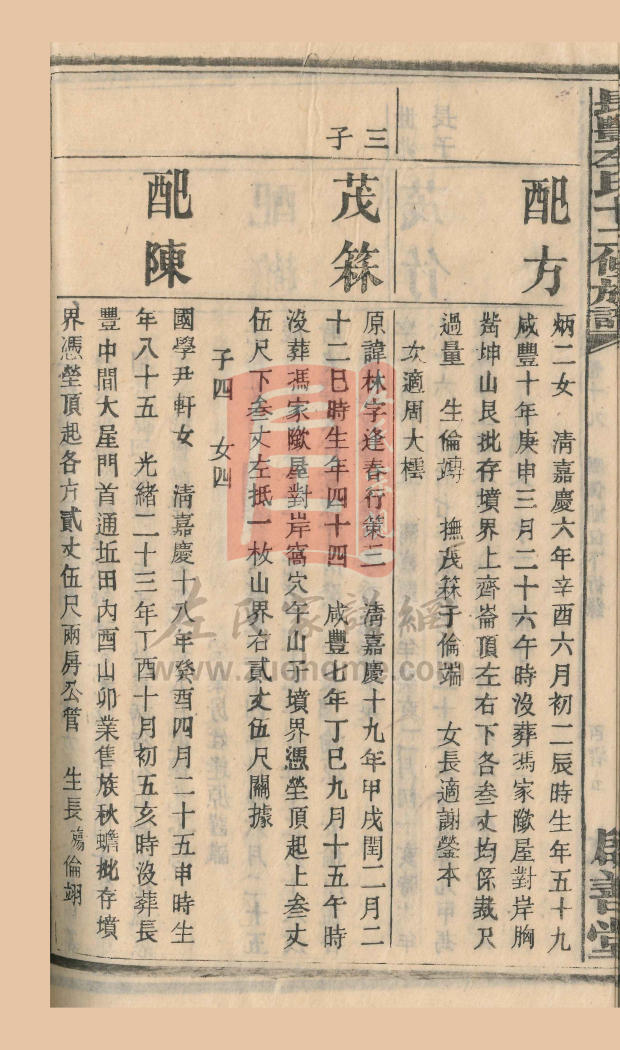 長豐左氏十二修族譜
惇善堂
配方
炳二女　清嘉慶六年辛酉六月初二辰時生年五十九
咸豐十年庚申三月二十六午時沒葬馮家墩屋對岸胸
坤山艮批存墳界上齊崙頂左右下各叄丈均係裁尺
過量　生倫　撫茂箖子倫端　女長適謝鎣本
次適周大櫺
三子
茂箖
原諱林字逢春行策三　清嘉慶十九年甲戌閏二月二
十二巳時生年四十四　咸豐七年丁巳九月十五午時
沒葬馮家墩屋對岸窩穴午山子墳界憑塋頂起上叄丈
伍尺下叄丈左抵一枚山界右貳丈伍尺關據
子四　女四
配陳
國學尹軒女　清嘉慶十八年癸酉四月二十五申時生
年八十五　光緒二十三年丁酉十月初五亥時沒葬長
豐中間大屋門首通坵田內酉山卯業售族秋蟾批存墳
界憑塋頂起各方貳丈伍尺兩房公管　生長殤倫翊
左氏家譜網
www.zuohome.com